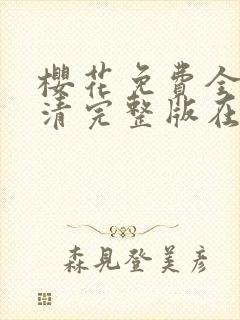 櫻花免費全
清完整版在
森見登美彦